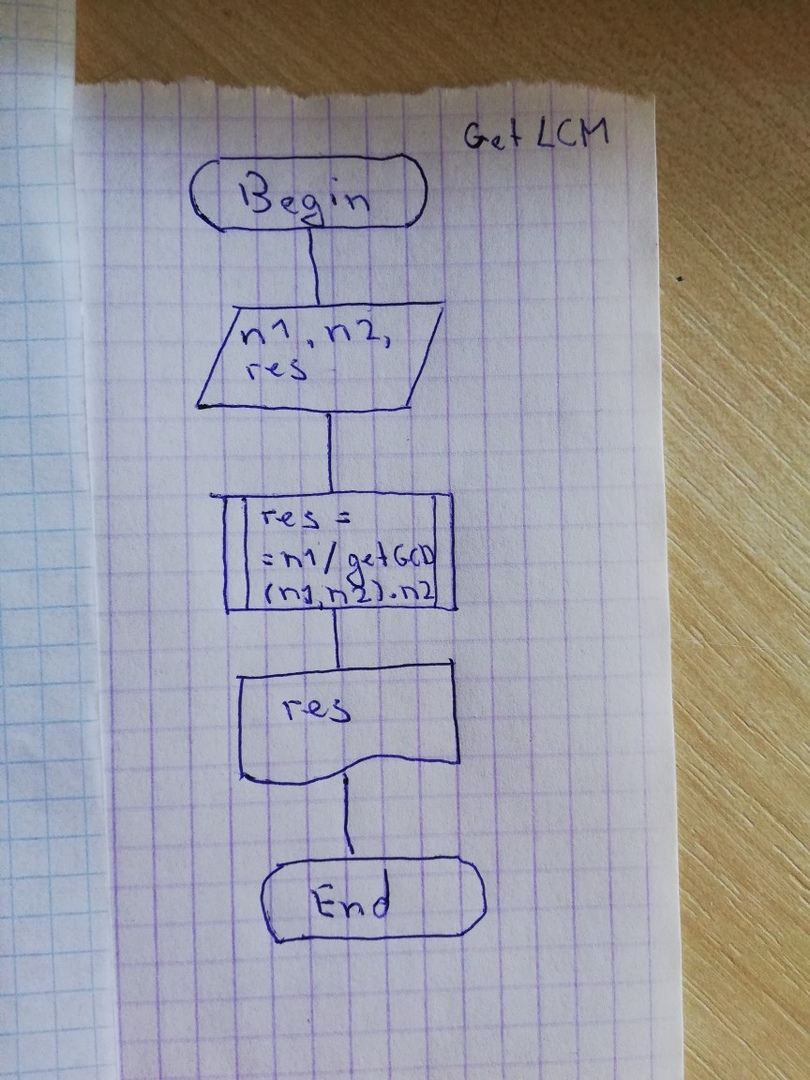 Get LCM
Begin
n1, n2,
res
res =
=n1/getGCD
(n1,n2).n2
res
End